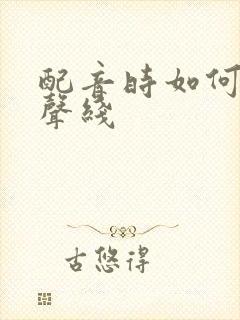 配音时如何
聲綫
古悠得